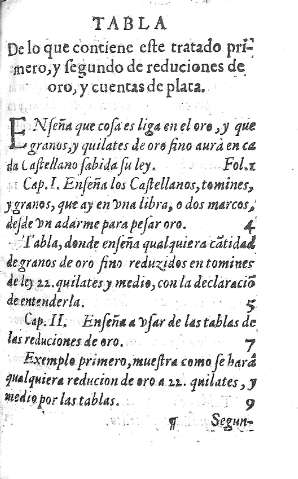 TABLA
De lo que contiene este tratado pri-
mero, y segundo de reduciones de
oro, y cuentas de plata.
ENseña que cosa es liga en el oro, y que
granos, y quilates de oro fino aurà en ca
da Castellano sabida su ley. Fol.1
Cap. I. Enseña los Castellanos, tomines,
y granos, que ay en vna libra, o dos marcos,
desde vn adarme para pesar oro. 4
Tabla, donde enseña qualquiera cãtidad
de granos de oro fino reduzidos en tomines
de ley 22. quilates y medio, con la declaraciõ
de entenderla. 5
Cap. II. Enseña a vsar de las tablas de
las reduciones de oro. 7
Exemplo primero, muestra como se harà
qualquiera reducion de oro a 22. quilates, y
medio por las tablas. 9
¶ Segun-